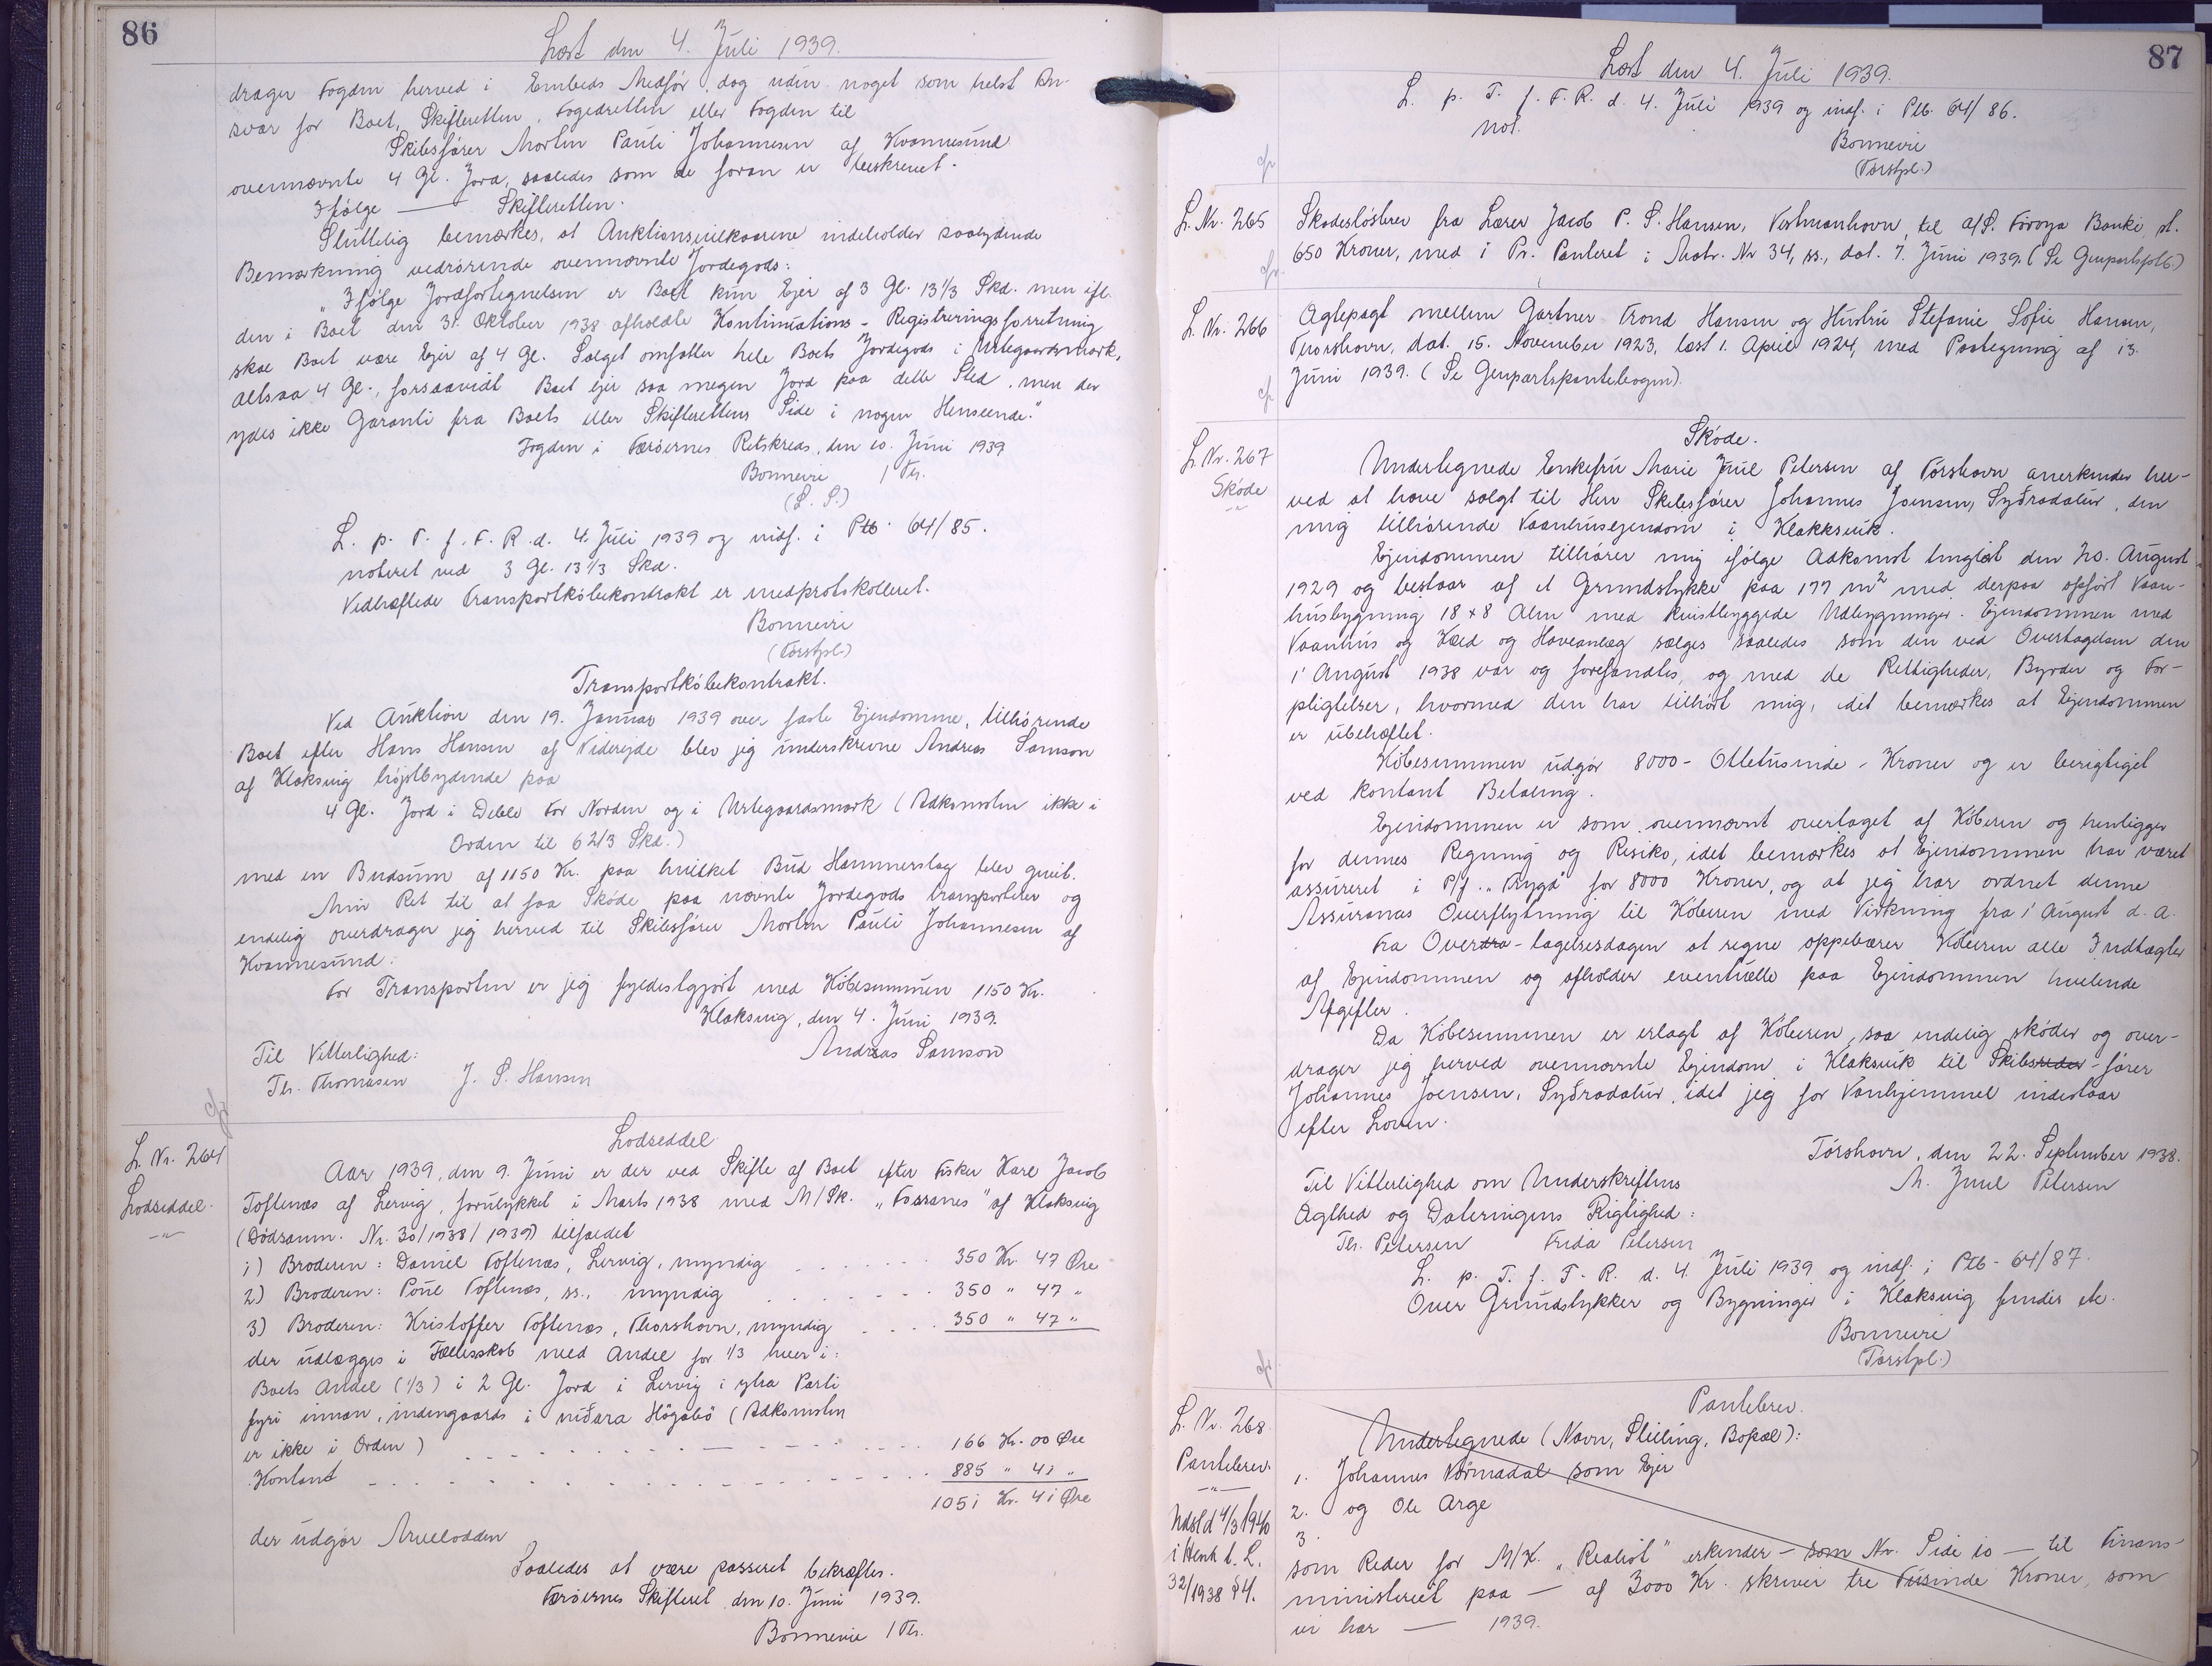 86
Læst den 4. Juli 1939.
drager Fogden herved i Embeds Medfør, dog uden noget som helst An-
svar for Boet, Skifteretten, Fogedretten eller Fogden til
Skibsfører Morten Pauli Johannesen af Kvannesund
ovennævnte 4 Gl. Jord, saaledes som de foran er beskrevet.
Ifølge — Skifteretten.
Sluttelig bemærkes, at Auktionsvilkaarene indeholder saalydende
Bemærkning vedrørende ovennævnte Jordegods:
"Ifølge Jordfortegnelsen er Boet kun Ejer af 3 Gl. 13 1/3 Skd. men ifl.
den i Boet den 31 Oktober 1938 afholdte Kontinuations-Registreringsforretning
skal Boet være Ejer af 4 Gl. Salget omfatter hele Boets Jordegods i Urtegaardsmark,
altsaa 4 Gl., forsaavidt Boet ejer saa megen Jord paa dette Sted, men der
ydes ikke Garanti fra Boets eller Skifterettens Side i nogen Henseende."
Fogden i Færøernes Retskreds, den 10. Juni 1939
Bonnevie / Th.
(L. S.)
L. p. T. f. F. R. d. 4. Juli 1939 og indf. i Ptb. 64/85.
noteret ved 3 Gl. 13 1/3 Skd.
Vedhæftede Transportkøbekontrakt er medprotokolleret.
Bonnevie
(Torstpl.)
Transportkøbekontrakt.
Ved Auktion den 19. Januar 1939 over faste Ejendomme, tilhørende
Boet efter Hans Hansen af Viderejde blev jeg underskrevne Andreas Samson
af Klaksvig højstbydende paa
4 Gl. Jord i Deble For Norden og i Urtegaardsmark (Adkomsten ikke i
Orden til 6 2/3 Skd.)
med en Budsum af 1150 Kr. paa hvilket Bud Hammerslag blev givet.
Min Ret til at faa Skøde paa nævnte Jordegods transporterer og
endelig overdrager jeg herved til Skibsfører Morten Pauli Johannesen af
Kvannesund.
For Transporten er jeg fyldestgjort med Købesummen 1150 Kr.
Klaksvig, den 4. Juni 1939.
Til Vitterlighed: Andreas Samson
Th. Thomasen J. S. Hansen
cfr.
L. Nr. 264
Lodseddel.
Lodseddel
Aar 1939, den 9. Juni er der ved Skifte af Boet efter Fisker Karl Jacob
Toftenæs af Lervig, forulykket i Marts 1938 med M/Sk. "Fossanes" af Klaksvig
(Dødsanm. Nr. 30/1938/1939) tilfaldet
1) Broderen: Daniel Toftenæs, Lervig, myndig . . . . . . 350 Kr. 47 Øre
2) Broderen: Poul Toftenæs, ss., myndig . . . . . . . 350 " 47 "
3) Broderen: Kristoffer Toftenæs, Thorshavn, myndig . . . . 350 " 47 "
der udlægges i Fællesskab med Andel for 1/3 hver i:
Boets Andel (1/3) i 2 Gl. Jord i Lervig i ytra Parti
fyri innan, indengaards i niðara Høgabø (Adkomsten
er ikke i Orden) . . . . . . . . . . 166 Kr. 00 Øre
Kontant . . . . . . . . . . . . 885 " 41 "
1051 Kr. 41 Øre
der udgør Arvelodden
Saaledes at være passeret bekræftes.
Færøernes Skifteret, den 10. Juni 1939.
Bonnevie / Th.
87
Læst den 4. Juli 1939.
L. p. T. f. F. R. d. 4. Juli 1939 og indf. i Ptb. 64/86.
Not.
Bonnevie
(Torstpl.)
cfr
L. Nr. 265 Skadesløsbrev fra Lærer Jacob P. S. Hansen, Vestmanhavn, til A/S. Føroya Banki, st.
650 Kroner, med 1' Pr. Panteret i Matr. Nr 34, ss., dat. 7. Juni 1939. (Se Genpartsptb.)
cfr.
L. Nr. 266 Ægtepagt mellem Gartner Trond Hansen og Hustru Stefanie Sofie Hansen,
Thorshavn, dat. 15. November 1923, læst 1. April 1924, med Paategning af 13.
Juni 1939. (Se Genpartspantebogen).
cfr
L. Nr. 267
Skøde
Skøde.
Undertegnede Enkefru Marie Juul Petersen af Tórshavn anerkender her-
ved at have solgt til Herr Skibsfører Johannes Joensen, Syðradalur, den
mig tilhørende Vaanhusejendom i Klakksvik.
Ejendommen tilhører mig ifølge Adkomst tinglæst den 20. August
1929 og bestaar af et Grundstykke paa 177 m² med derpaa opført Vaan-
husbygning 18 x 8 Alen med kvistbyggede Udbygninger. Ejendommen med
Vaanhus og Hæd og Haveanlæg sælges saaledes som den ved Overtagelsen den
1' August 1938 var og forefandtes, og med de Rettigheder, Byrder og For-
pligtelser, hvormed den har tilhørt mig, idet bemærkes at Ejendommen
er ubehæftet.
Købesummen udgør 8000 - Ottetusinde - Kroner og er berigtiget
ved kontant Betaling.
Ejendommen er som ovennævnt overtaget af Køberen og henligger
for dennes Regning og Risiko, idet bemærkes at Ejendommen har været
assureret i P/f. "Trygd" for 8000 Kroner, og at jeg har ordnet denne
Assurances Overflytning til Køberen med Virkning fra 1' August d. A.
Fra Overdra - tagelsesdagen at regne oppebærer Køberen alle Indtægter
af Ejendommen og afholder eventuelle paa Ejendommen hvilende
Afgifter.
Da Købesummen er erlagt af Køberen, saa endelig skøder og over-
drager jeg herved ovennævnte Ejendom i Klaksvik til Skibsreder - fører
Johannes Joensen, Syðradalur, idet jeg for Vanhjemmel indestaar
efter Loven.
Tórshavn, den 22. September 1938.
Til Vitterlighed om Underskriftens M. Juul Petersen
Ægthed og Dateringens Rigtighed:
Th. Petersen Frida Petersen
L. p. T. f. F. R. d. 4. Juli 1939 og indf. i Ptb. 64/87.
Over Grundstykker og Bygninger i Klaksvig findes etc.
Bonnevie
(Torstpl.)
cfr.
L. Nr. 268
Pantebrev
Udsl d 4/3 1940
i Henh t. L.
32/1938 §4.
Pantebrev.
Undertegnede (Navn, Stilling, Bopæl):
1. Johannes Kørmadal som Ejer
2. og Ole Arge
3.
som Reder for M/K. "Realist" erkender - som Nr. Side 10 — til Finans-
ministeriet paa — af 3000 Kr. skriver tre Tusinde Kroner, som
vi har — 1939.